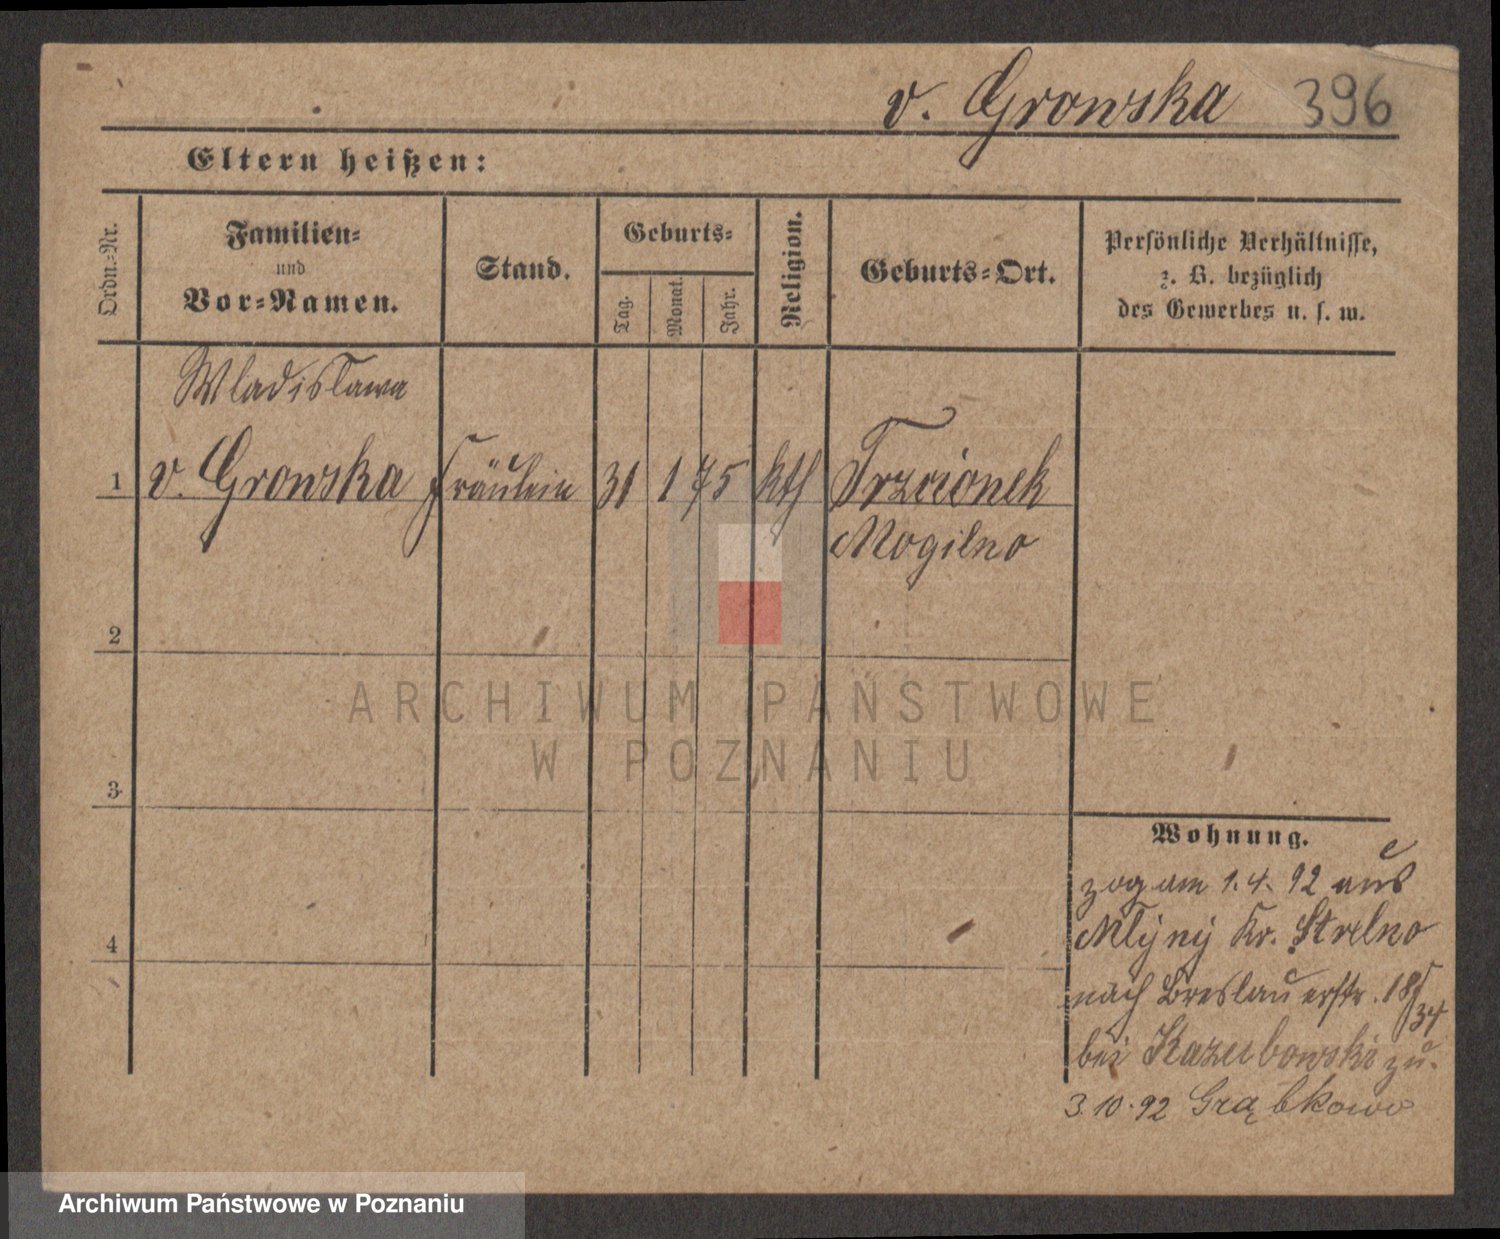 v. Growska 396
Eltern heißen:
Ordn.-Nr.
Familien-
und
Vor-Namen.
Stand.
Geburts-
Tag.
Monat.
Jahr.
Religion.
Geburts-Ort.
Persönliche Verhältnisse,
z. B. bezüglich
des Gewerbes u. s. w.
Wladislawa
1 v. Growska Fräulein 31 1 75 kth Trzcionek
Mogilno
2
3
4
Wohnung.
zog am 1. 4. 92 aus
Mlyny Kr. Strelno
nach Breslauerstr. 18/
34
bei zu.
3. 10. 92 Grąbkowo
ARCHIWUM PAŃSTWOWE
W POZNANIU
Archiwum Państwowe w Poznaniu